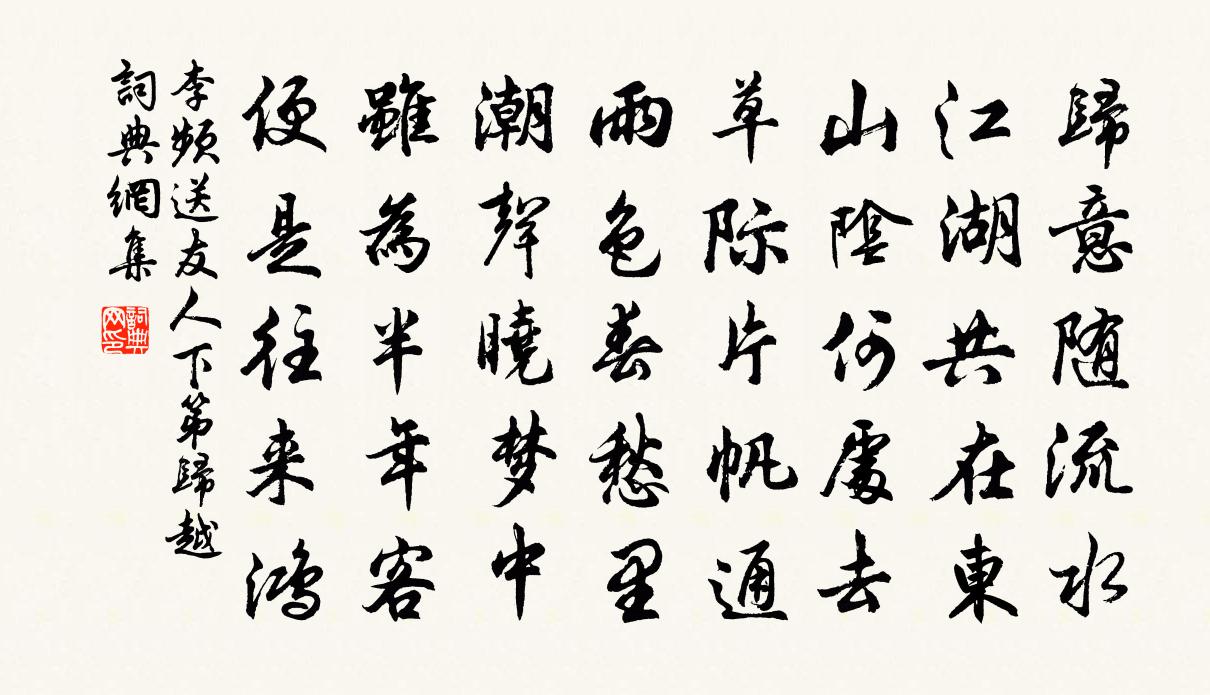 歸意隨流水
江湖共在東
山陰何處去
草际片帆通
雨色春愁里
潮聲曉梦中
雖為半年客
便是往来鴻
李頻送友人下第歸越
詞典網集
詞典网印